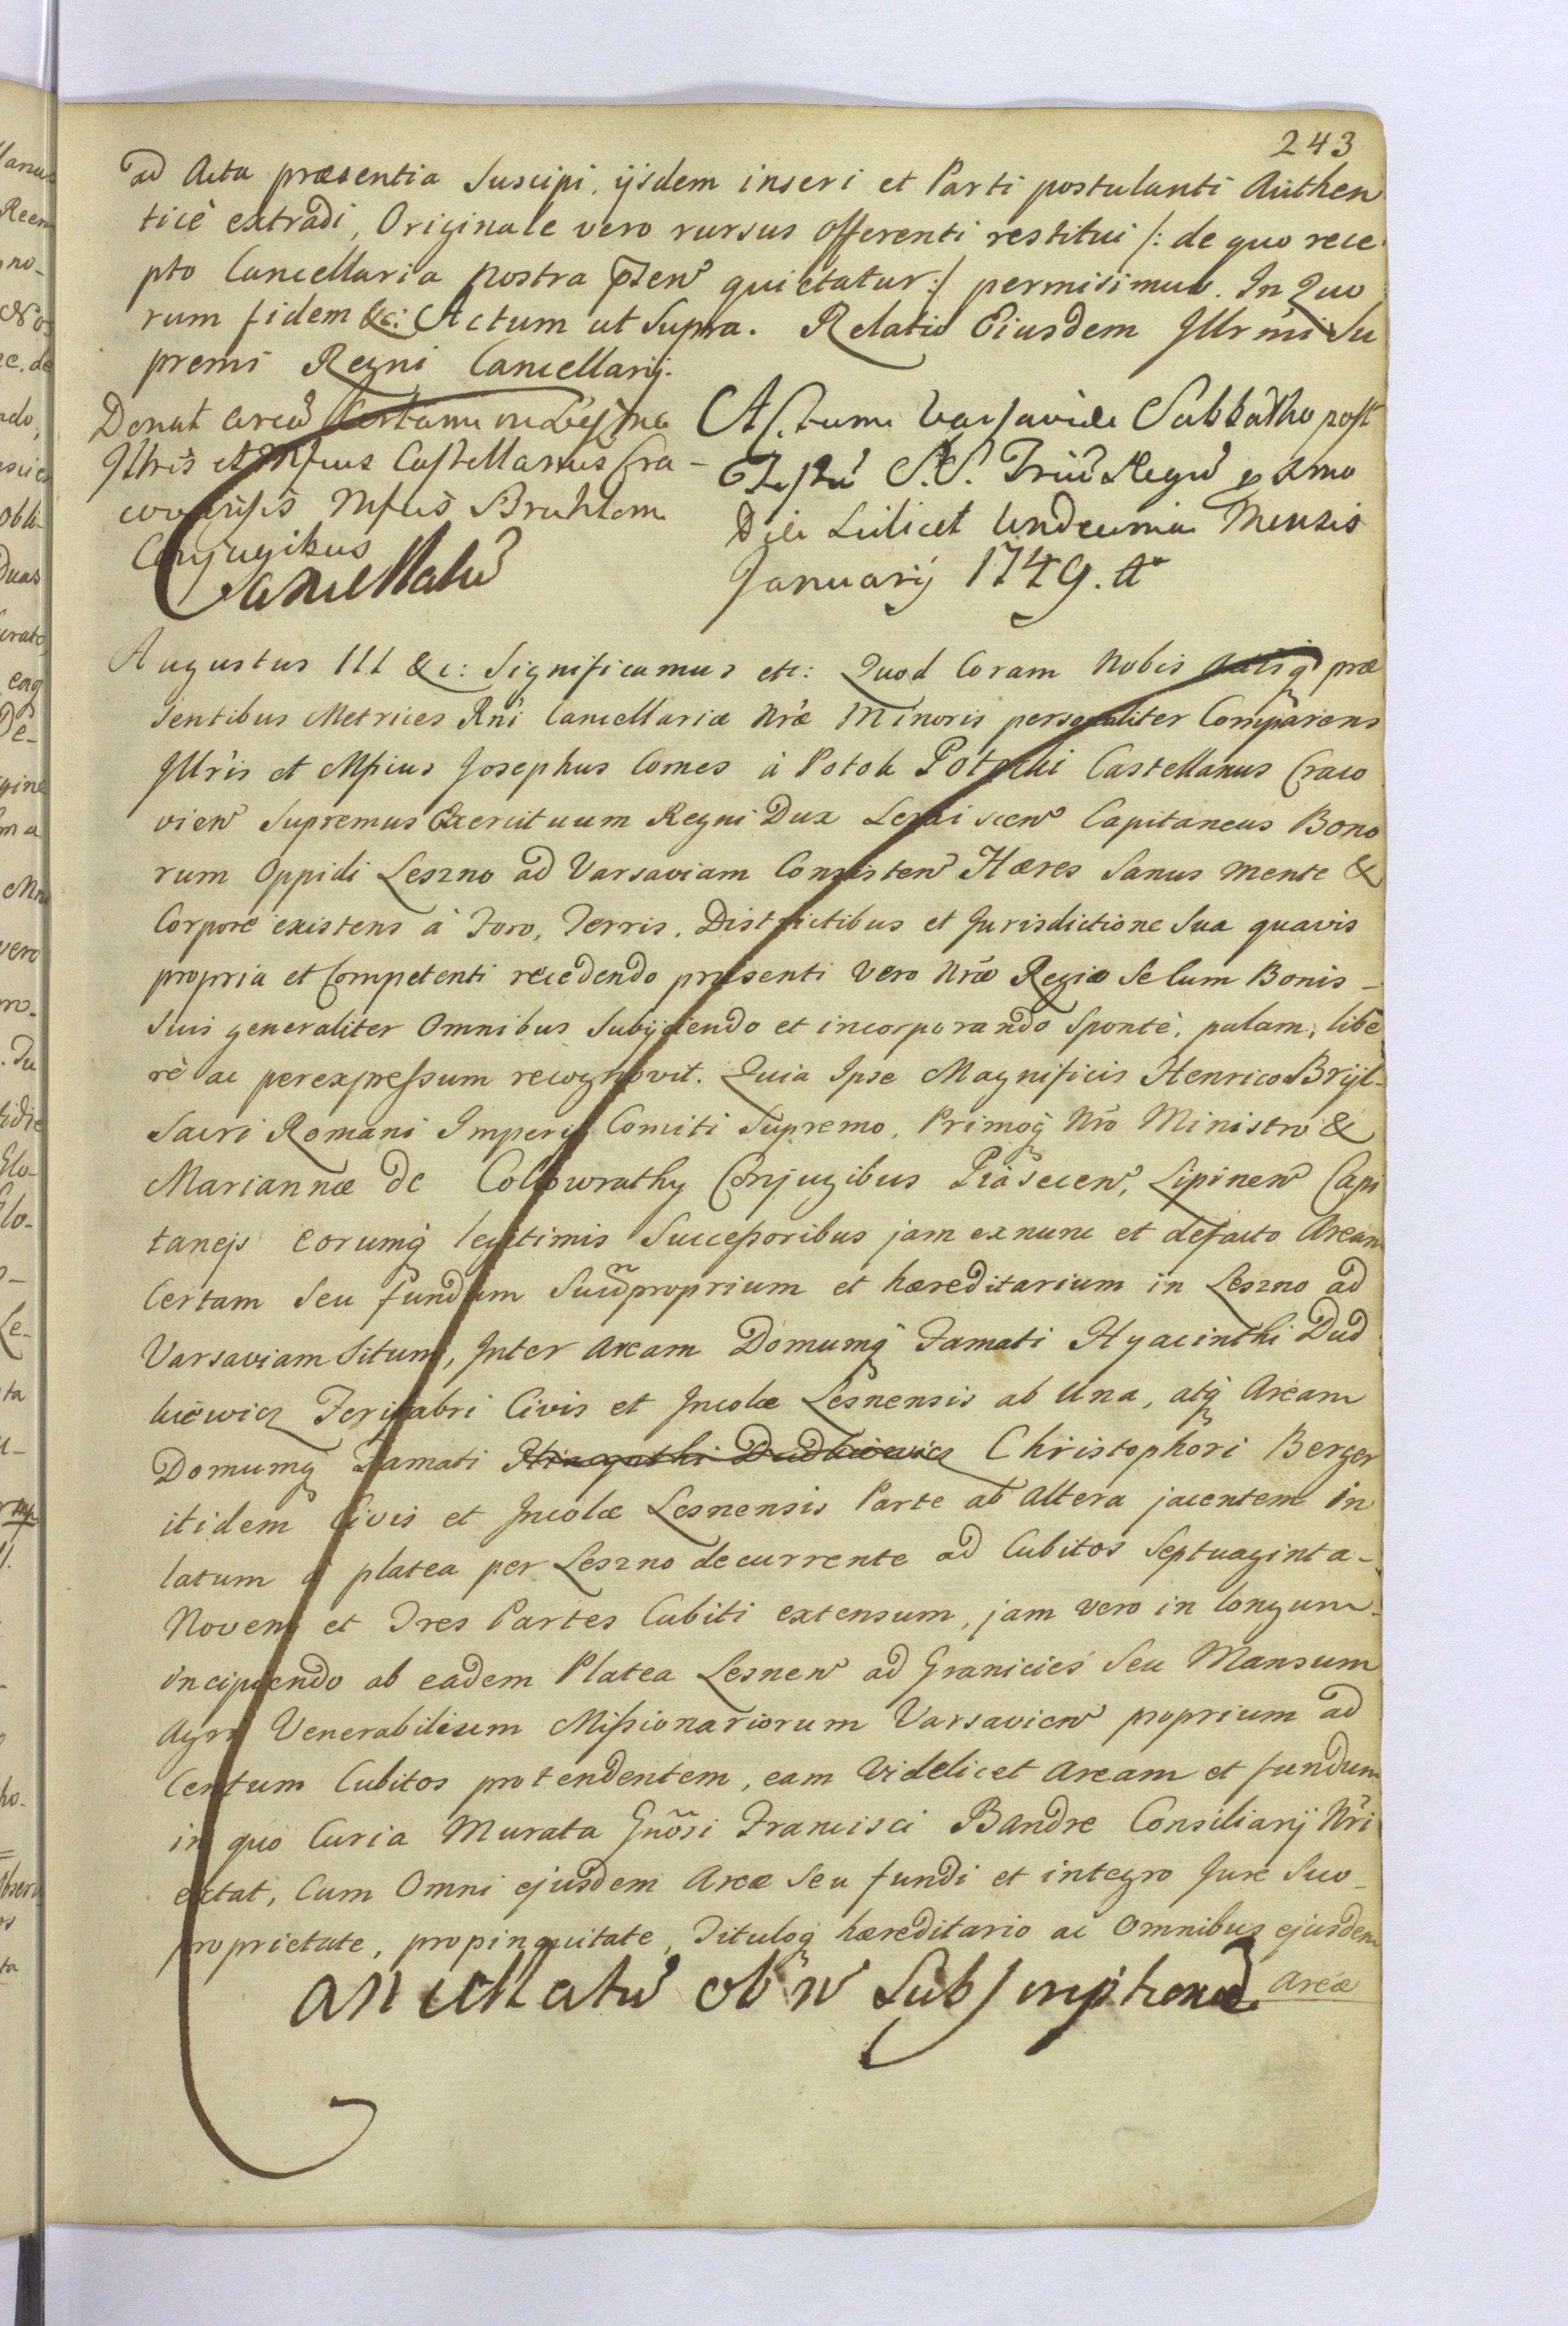 243
ad Acta præsentia Suscipi, ijsdem inseri et Parti postulanti Authen
ticè extradi, Originale vero rursus Offerenti restitui /: de quo rece
pto Cancellaria nostra quietatur :/ permisimus. In Quo
rum fidem &c: Actum ut Supra. Relatio Eiusdem Illr̃mi Su
premi Regni Cancellarij.
Donat Certam
Illris et Mfcus Castellanus Cra-
Mfcis Bruhlom
Conjugibus
Cancellatũ
Actum Varsaviæ Sabbatho post
S.S. Triũ Regũ pxmo
Die Scilicet Undecima Mensis
Januarij 1749. Aº
Augustus III &c: Significamus etc: Quod Coram Nobis Actisq̃ præ
sentibus Metrices Rñi Cancellariæ Nræ Minoris personaliter Comparens
Illr̃is et Mficus Josephus Comes à Potok Potocki Castellanus Craco
vieñ Supremus Exercituum Regni Dux Capitaneus Bono
rum Oppidi Leszno ad Varsaviam Consisteñ Hæres Sanus mente &
Corpore existens à Foro, Terris, Districtibus et Jurisdictione Sua quavis
propria et Competenti recedendo præsenti Vero Nræ Regiæ Se Cum Bonis-
Suis generaliter Omnibus Subijciendo et incorporando Spontè, palam, libe
rè ac per expressum recognovit. Quia Ipse Magnificis Henrico Brýl-
Sacri Romani Imperij Comiti Supremo, Primoq̃ Nr̃o Ministro &
Mariannæ de Collowrathy Conjugibus Piaseceñ, Lipineñ Capi
taneis eorumq̃ legitimis Successoribus jam ex nunc et defacto Aream
Certam Seu fundum Suũ proprium et hæreditarium in Leszno ad
Varsaviam Situm, Inter Aream Domumq̃ Famati Hyacinthi Dud
kiewicz Ferifabri Civis et Incolæ Lesnensis ab Una, atq̃ Aream
Domumq̃ Famati Hiacynthi Dudkiewicz Christophori Berger
itidem Civis et Incolæ Lesnensis Parte ab Altera jacentem in
latum a platea per Leszno decurrente ad Cubitos Septuaginta-
Novem et Tres Partes Cubiti extensum, jam vero in longum-
incipiendo ab eadem Platea Lesneñ ad Granicies Seu Mansum
Agri Venerabilium Missionariorum Varsavieñ proprium ad
Centum Cubitos protendentem, eam Videlicet Aream et fundum
in quo Curia Murata Gñosi Francisci Bandre Consiliarij Nr̃i
extat, Cum Omni ejusdem Areæ Seu fundi et integro Jure Suo-
proprietate, propinquitate, Tituloq̃ hæreditario ac Omnibus ejusdem
Areæ
Cancellatũ ob ñ Subscriptionem